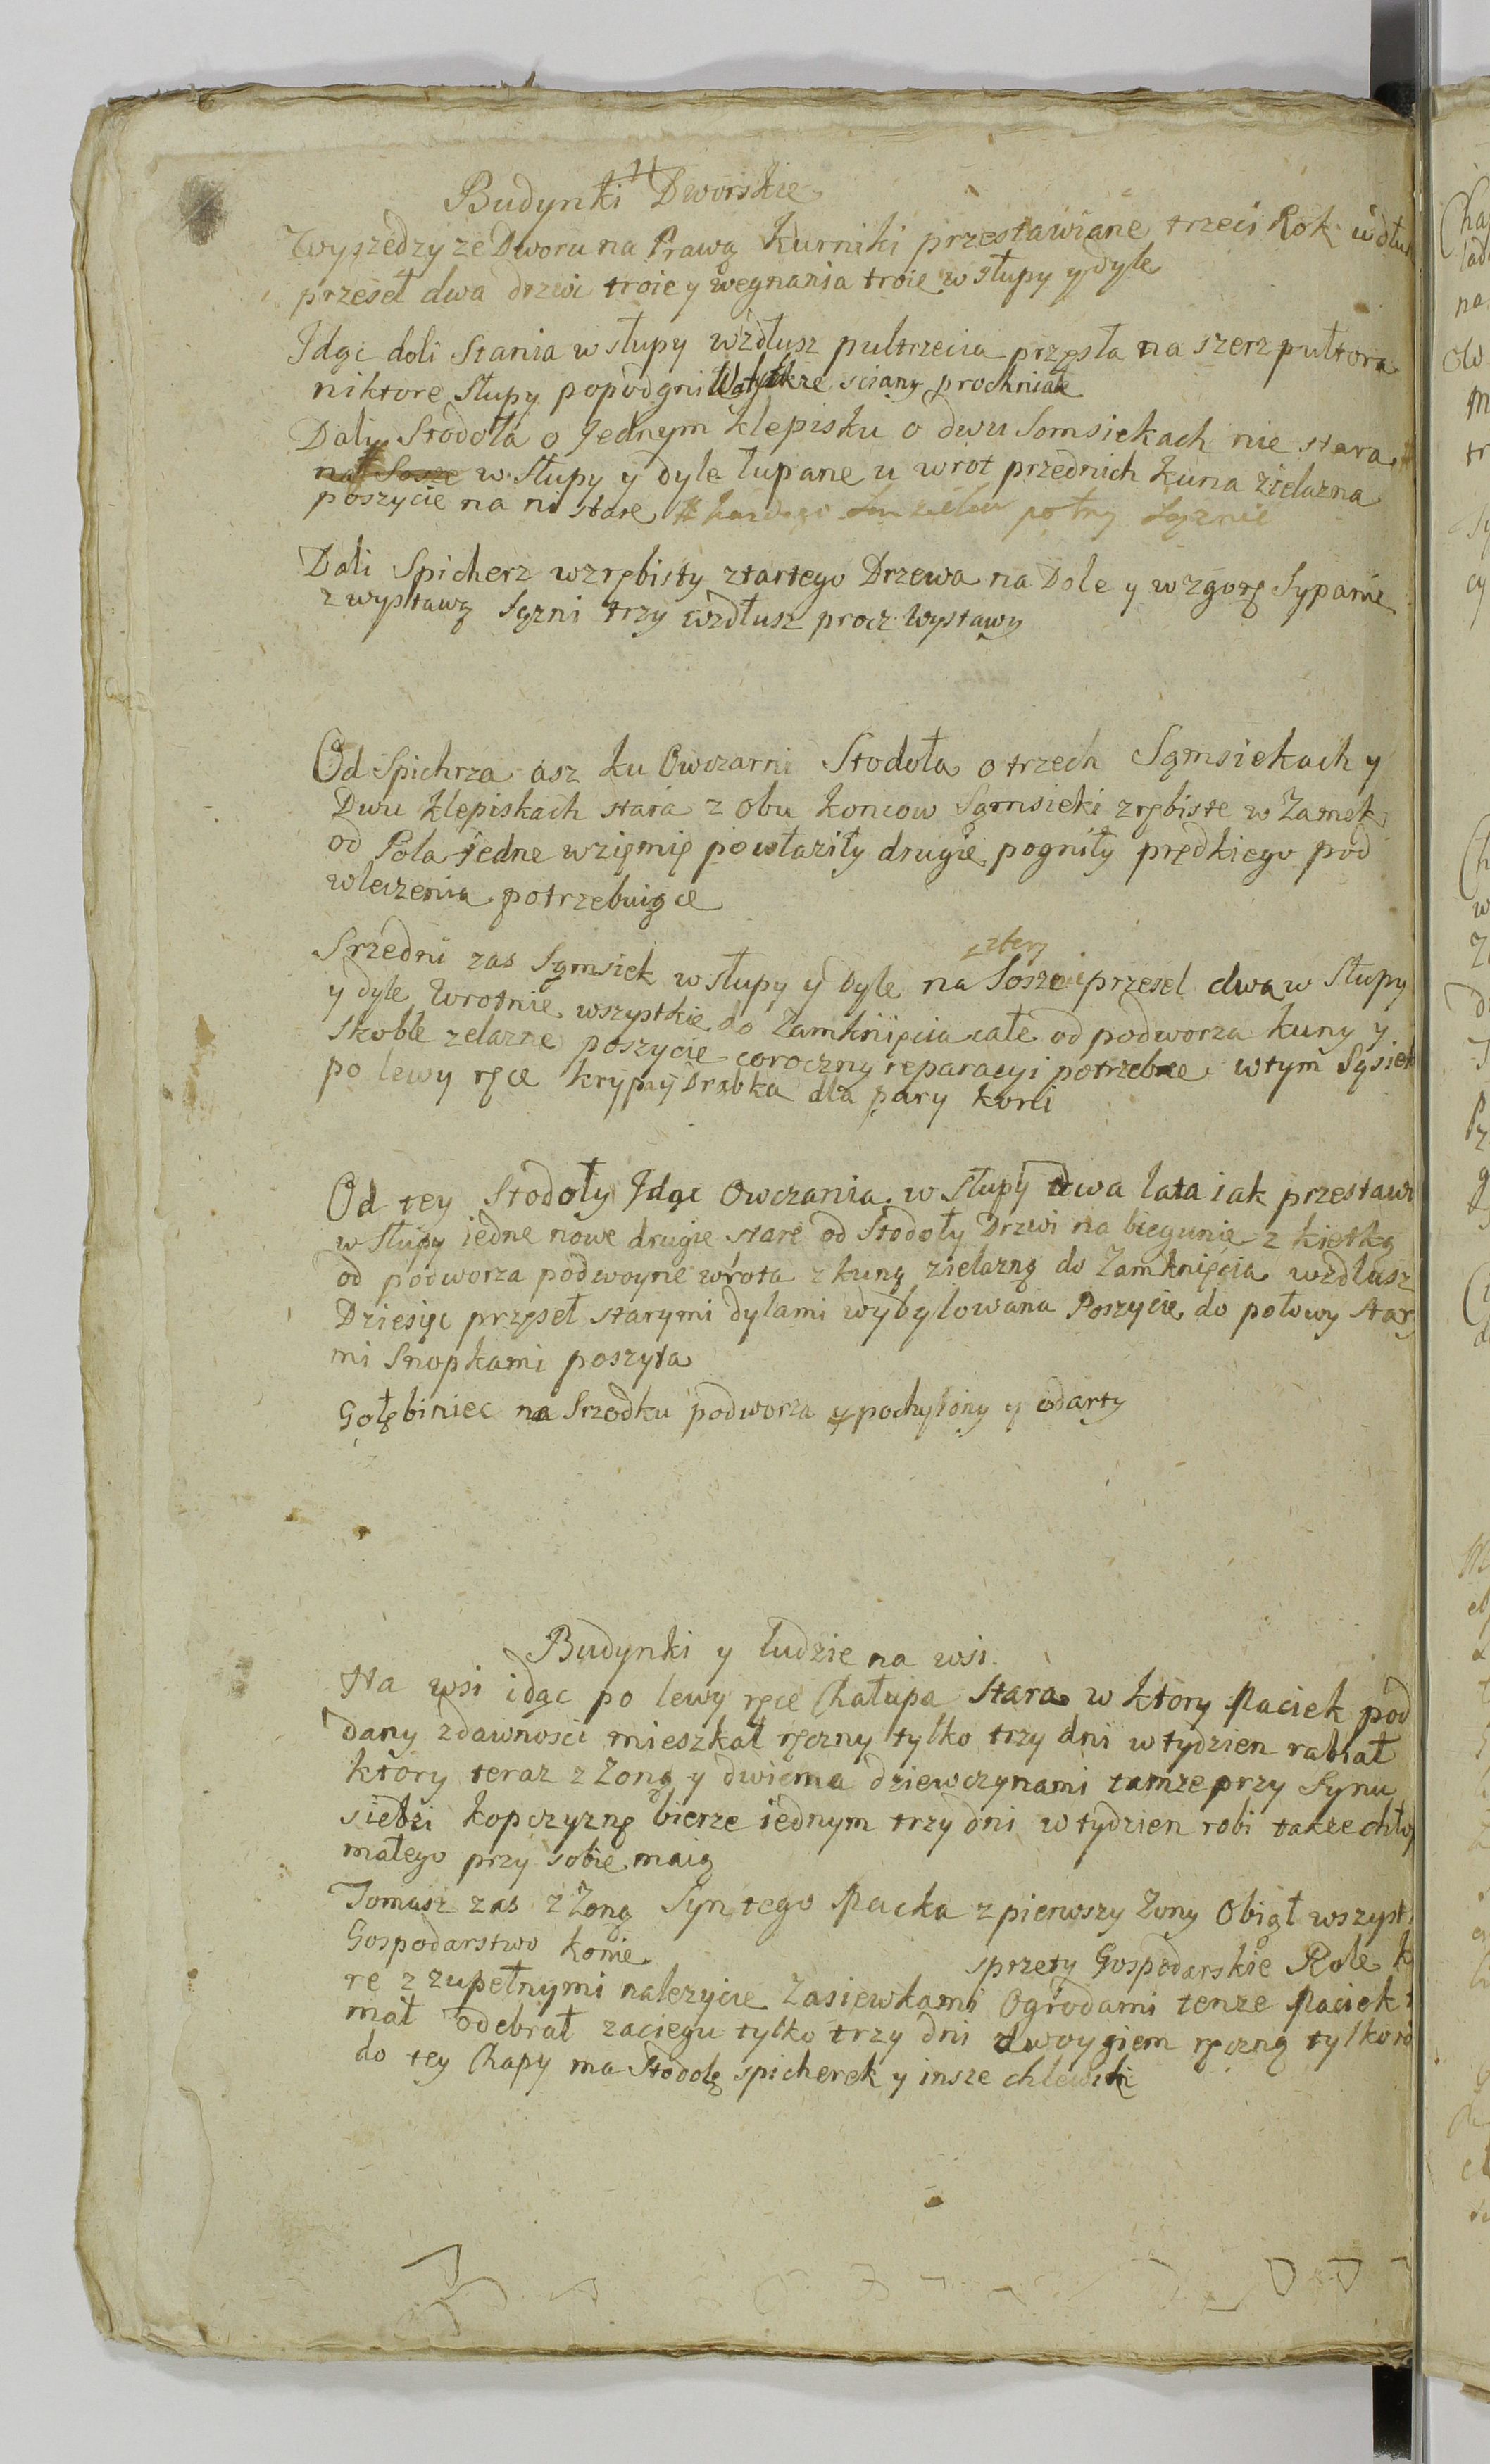 Budynki Dworskie
Wyszedzy ze Dworu na Prawą Kurniki przestawiane trzeci Rok wdłu
przeseł dwa drzwi troie y wegnania troie w słupy y dyle
Idąc doli Stania w słupy wzdłusz pultrzecia przęsła na szerz pułtora
niktore Słupy popodgni sciany prochniałe
Daly Stodoła o Jednym klepisku o dwu Somsiekach nie stara
na Sosze w Słupy y dyle łupane u wrot przednich kuna zielazna
poszycie na ni stare
Dali Spicherz wzrębisty ztartego Drzewa na Dole y wzgorę Sypanie
z wystawą Sązni trzy wzdłusz procz wystawy
Od Spichrza asz ku Owczarni Stodoła o trzech Sąmsiekach y
Dwu klepiskach stara z obu koncow Sąmsieki zrębiste w Zamek
od Pola jedne wziemię powłaziły drugie pogniły prędkiego pod
wleczenia potrzebuiące
cztery
Srzedni zas Sąmsiek w słupy y dyle na Sosze przeseł dwa w Słupy
y dyle Wrotnie wszystkie do Zamknięcia całe od podworza kuny y
Skoble zelazne poszycie coroczny reparacyi potrzebne wtym Sąsiek
po lewy ręce krypy Drabka dla pary koni
Od tey Stodoły Idąc Owczania w Słupy dwa lata iak przestaw
w Słupy iedne nowe drugie stare od Stodoły Drzwi na biegunie z kietką
od podworza podwoyne wrota z kuną zielazną do Zamknięcia wzdłusz
Dziesięc przęseł starymi dylami wybylowana Poszycie do połowy stary
mi Snopkami poszyta
Gołębiniec na Srzodku podworza y pochylony y odarty
Budynki y ludzie na wsi
Na wsi idąc po lewy ręce Chałupa Stara w ktory Maciek pod
dany zdawnosci mieszkał ręczny tylko trzy dni w tydzien rabiał
ktory teraz z Zoną y dwiema dziewczynami tamze przy Synu
siedzi kopczyznę bierze iednym trzy dni w tydzien robi takze chło
małego przy sobie maią
Tomasz zas z Zoną Syn tego Macka z pierwszy Zony Obiął wszyst
Gospodarstwo konie sprzety Gospodarskie Role k
re z zupełnymi nalezycie Zasiewkami Ogrodami tenze Maciek
mał odebrał zaciegu tylko trzy dni dwoygiem ręczną tylko
do tey Chapy ma Stodołę spicherek y insze chlewiki